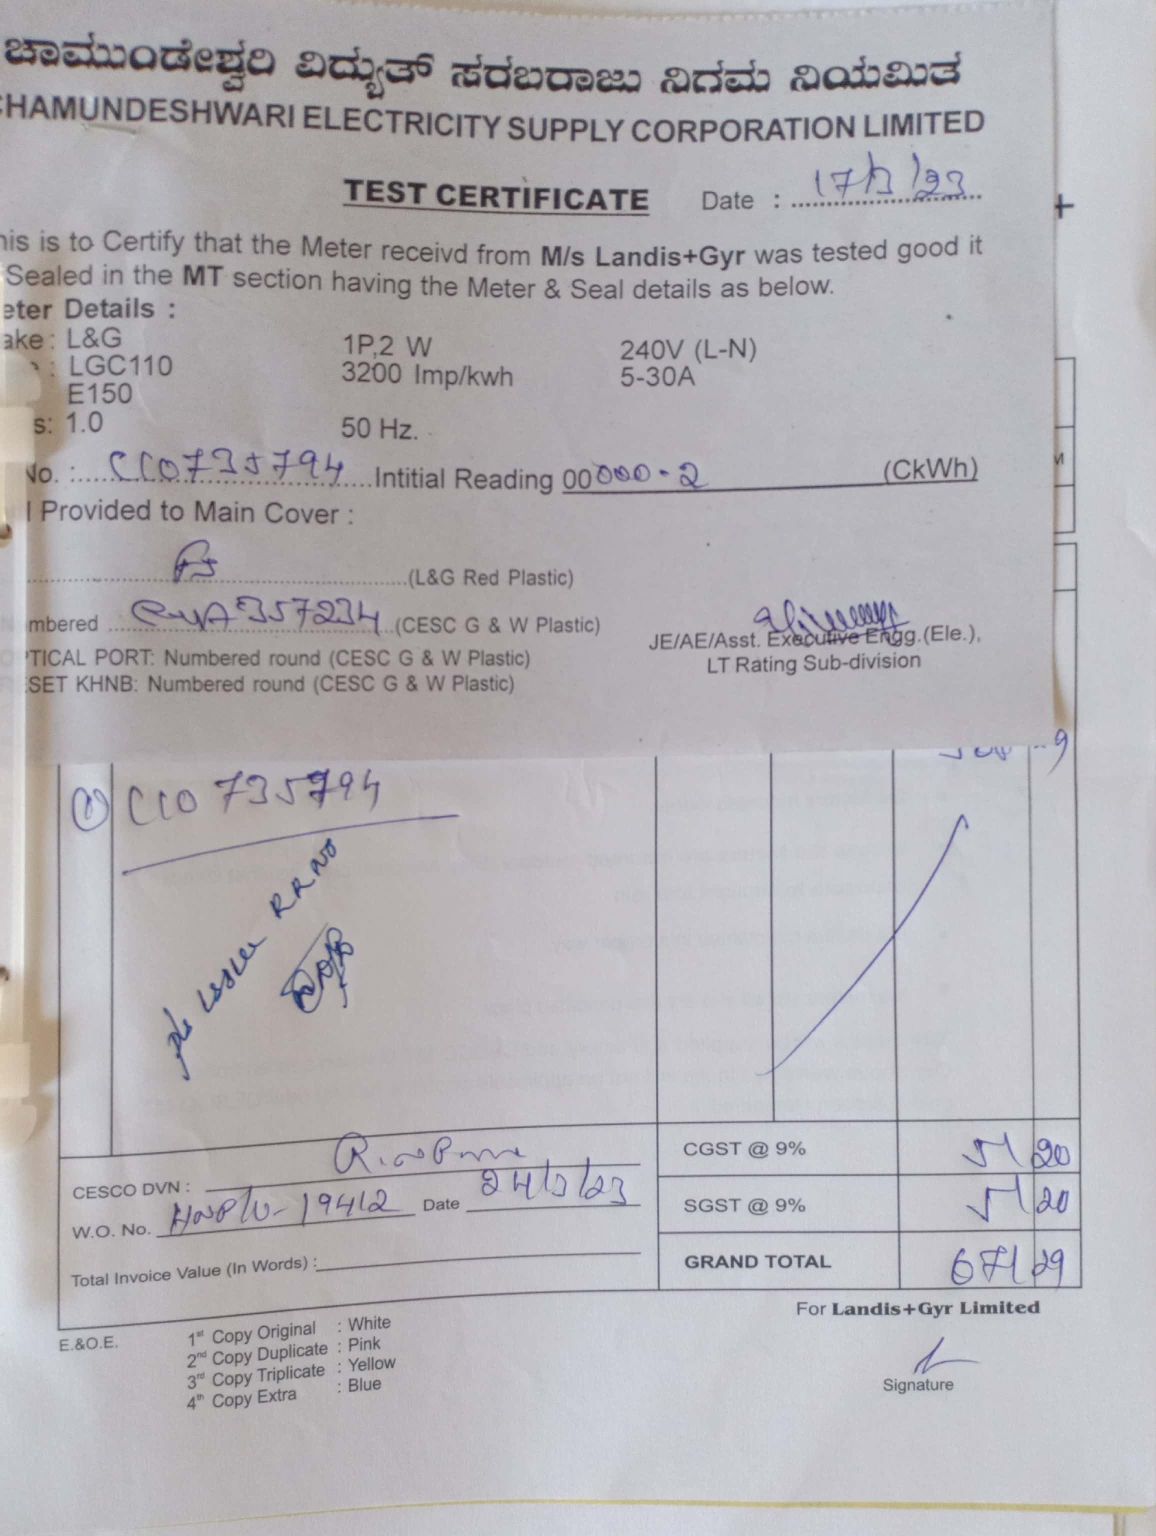 ಚಾಮುಂಡೇಶ್ವರಿ ವಿದ್ಯುತ್ ಸರಬರಾಜು ನಿಗಮ ನಿಯಮಿತ
CHAMUNDESHWARI ELECTRICITY SUPPLY CORPORATION LIMITED
TEST CERTIFICATE Date : 17/3/23
his is to Certify that the Meter receivd from M/s Landis+Gyr was tested good it
Sealed in the MT section having the Meter & Seal details as below.
eter Details :
ake : L&G 1P,2 W 240V (L-N)
: LGC110 3200 Imp/kwh 5-30A
E150
s: 1.0 50 Hz.
No. : CC0735794 Intitial Reading 00000-2 (CkWh)
l Provided to Main Cover :
(L&G Red Plastic)
mbered 357234 (CESC G & W Plastic)
JE/AE/Asst. Executive Engg.(Ele.),
TICAL PORT: Numbered round (CESC G & W Plastic)
LT Rating Sub-division
SET KHNB: Numbered round (CESC G & W Plastic)
1 CC0735794
RRNo
CGST @ 9% 51 20
CESCO DVN :
W.O. No. 19412 Date 24/3/23
SGST @ 9% 51 20
Total Invoice Value (In Words) :
GRAND TOTAL 671 29
For Landis+Gyr Limited
E.&O.E.
1st Copy Original : White
2nd Copy Duplicate : Pink
3rd Copy Triplicate : Yellow
4th Copy Extra : Blue
Signature